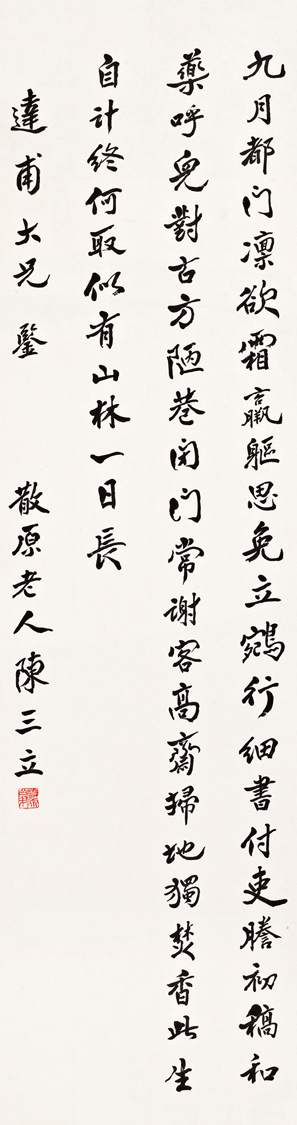 九月都门凛欲霜羸軀思免立鵷行細書付吏謄初稿和
藥呼兒對古方陋巷閉门常謝客高齋掃地獨焚香此生
自计終何取似有山林一日長
達甫大兄鑒
散原老人陳三立